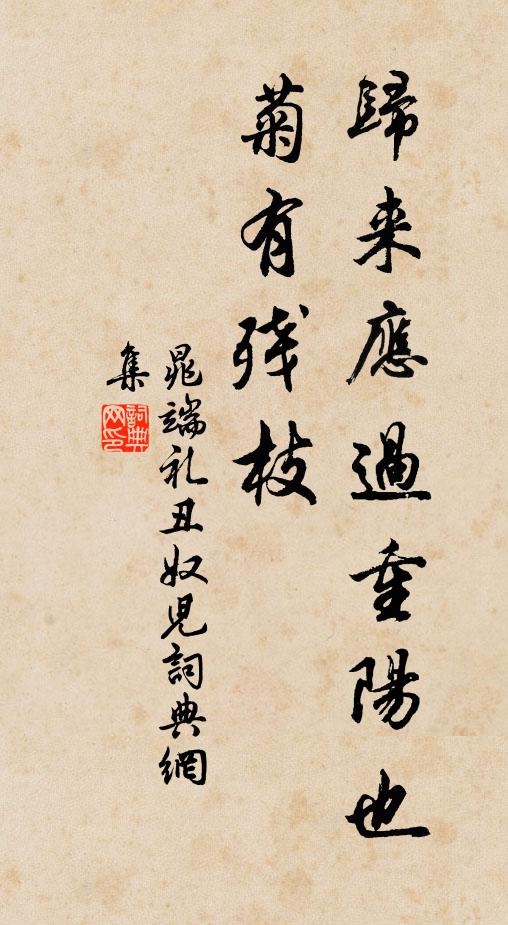 歸来應過重陽也
菊有残枝
晁端礼丑奴児詞典網
集
詞典
网印